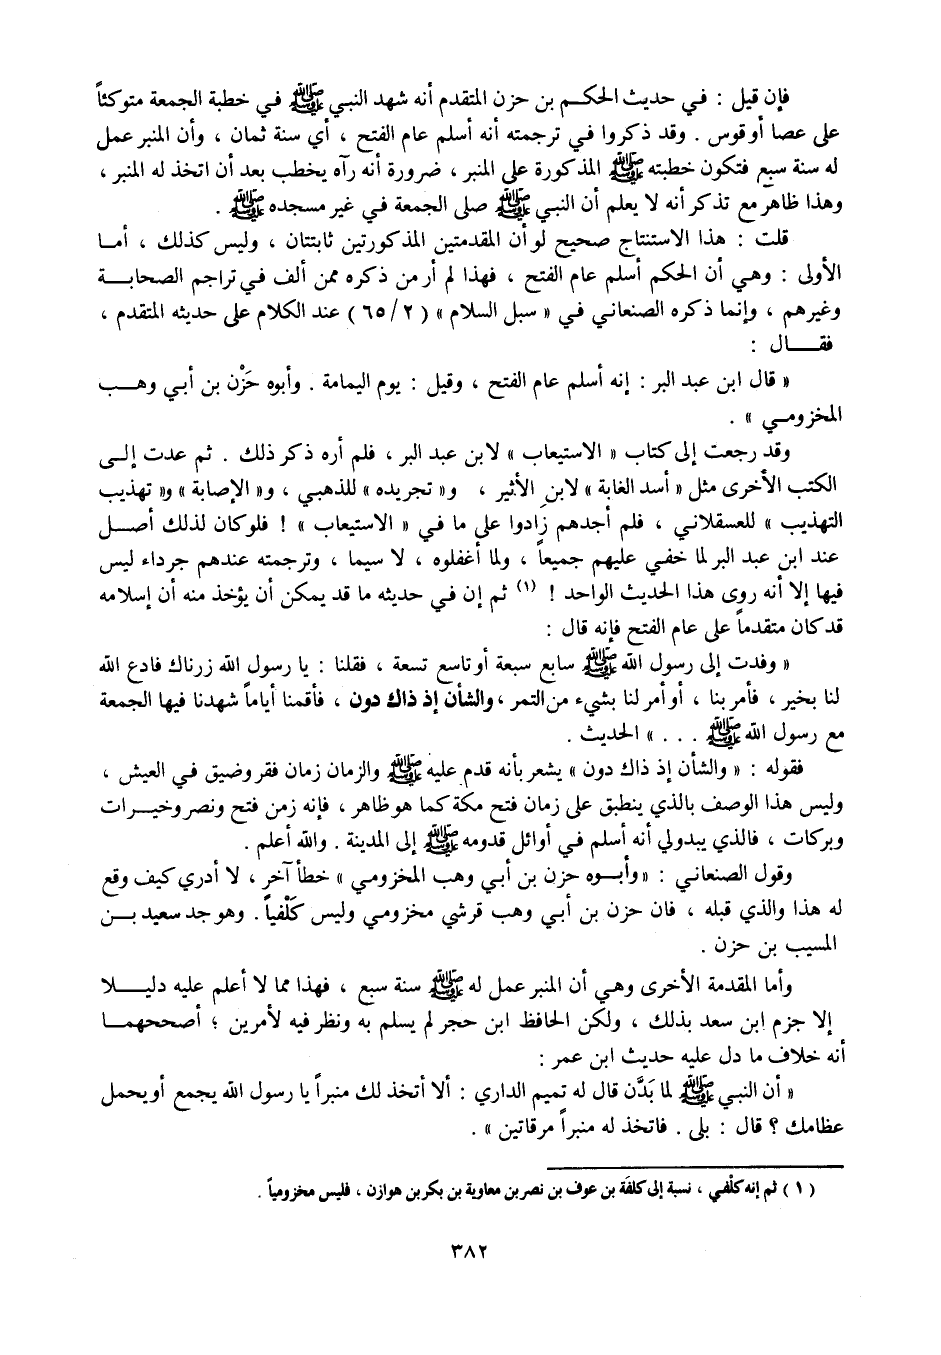 فإن قيل : في حديث الحكـم بن حزن المتقدم أنه شهد النبي ﷺ في خطبة الجمعة متوكئاً
على عصا أو قوس . وقد ذكروا في ترجمته أنه أسلم عام الفتح ، أي سنة ثمان ، وأن المنبر عمل
له سنة سبع فتكون خطبته ﷺ المذكورة على المنبر ، ضرورة أنه رآه يخطب بعد أن اتخذ له المنبر ،
وهذا ظاهر مع تذكر أنه لا يعلم أن النبي ﷺ صلى الجمعة في غير مسجده ﷺ .
قلت : هذا الاستنتاج صحيح لو أن المقدمتين المذكورتين ثابتتان ، وليس كذلك ، أمـا
الأولى : وهي أن الحكم أسلم عام الفتح ، فهذا لم أر من ذكره ممن ألف في تراجم الصحابـة
وغيرهم ، وإنما ذكره الصنعاني في « سبل السلام » ( ٢/ ٦٥ ) عند الكلام على حديثه المتقدم ،
فقـــال :
« قال ابن عبد البر : إنه أسلم عام الفتح ، وقيل : يوم اليمامة . وأبوه حَزْن بن أبي وهـب
المخزومـي » .
وقد رجعت إلى كتاب « الاستيعاب » لابن عبد البر ، فلم أره ذكر ذلك . ثم عدت إلـى
الكتب الأخرى مثل « أسد الغابة » لابن الأثير ، و« تجريده » للذهبي ، و« الإصابة » و« تهذيب
التهذيب » للعسقلاني ، فلم أجدهم زادوا على ما في « الاستيعاب » ! فلو كان لذلك أصـل
عند ابن عبد البر لما خفي عليهم جميعاً ، ولما أغفلوه ، لا سيما ، وترجمته عندهم جرداء ليس
فيها إلا أنه روى هذا الحديث الواحد ! (١) ثم إن في حديثه ما قد يمكن أن يؤخذ منه أن إسلامه
قد كان متقدماً على عام الفتح فإنه قال :
« وفدت إلى رسول الله ﷺ سابع سبعة أو تاسع تسعة ، فقلنا : يا رسول الله زرناك فادع الله
لنا بخير ، فأمر بنا ، أو أمر لنا بشيء من التمر ، والشأن إذ ذاك دون ، فأقمنا أياماً شهدنا فيها الجمعة
مع رسول الله ﷺ . . . » الحديث .
فقوله : « والشأن إذ ذاك دون » يشعر بأنه قدم عليه ﷺ والزمان زمان فقر وضيق في العيش ،
وليس هذا الوصف بالذي ينطبق على زمان فتح مكة كما هو ظاهر ، فإنه زمن فتح ونصر وخيـرات
وبركات ، فالذي يبدو لي أنه أسلم في أوائل قدومه ﷺ إلى المدينة . والله أعلم .
وقول الصنعاني : « وأبـوه حزن بن أبي وهب المخزومي » خطأ آخر ، لا أدري كيف وقع
له هذا والذي قبله ، فان حزن بن أبي وهب قرشي مخزومي وليس كَلْفياً . وهو جد سعيد بـن
المسيب بن حزن .
وأما المقدمة الأخرى وهي أن المنبر عمل له ﷺ سنة سبع ، فهذا مما لا أعلم عليه دليـلا
إلا جزم ابن سعد بذلك ، ولكن الحافظ ابن حجر لم يسلم به ونظر فيه لأمرين ؛ أصححهمـا
أنه خلاف ما دل عليه حديث ابن عمر :
« أن النبي ﷺ لما بَدَّن قال له تميم الداري : ألا أتخذ لك منبراً يا رسول الله يجمع أو يحمل
عظامك ؟ قال : بلى . فاتخذ له منبراً مرقاتين » .
( ١ ) ثم إنه كلْفي ، نسبة إلى كلفَة بن عوف بن نصر بن معاوية بن بكر بن هوازن ، فليس مخزومياً .
٣٨٢